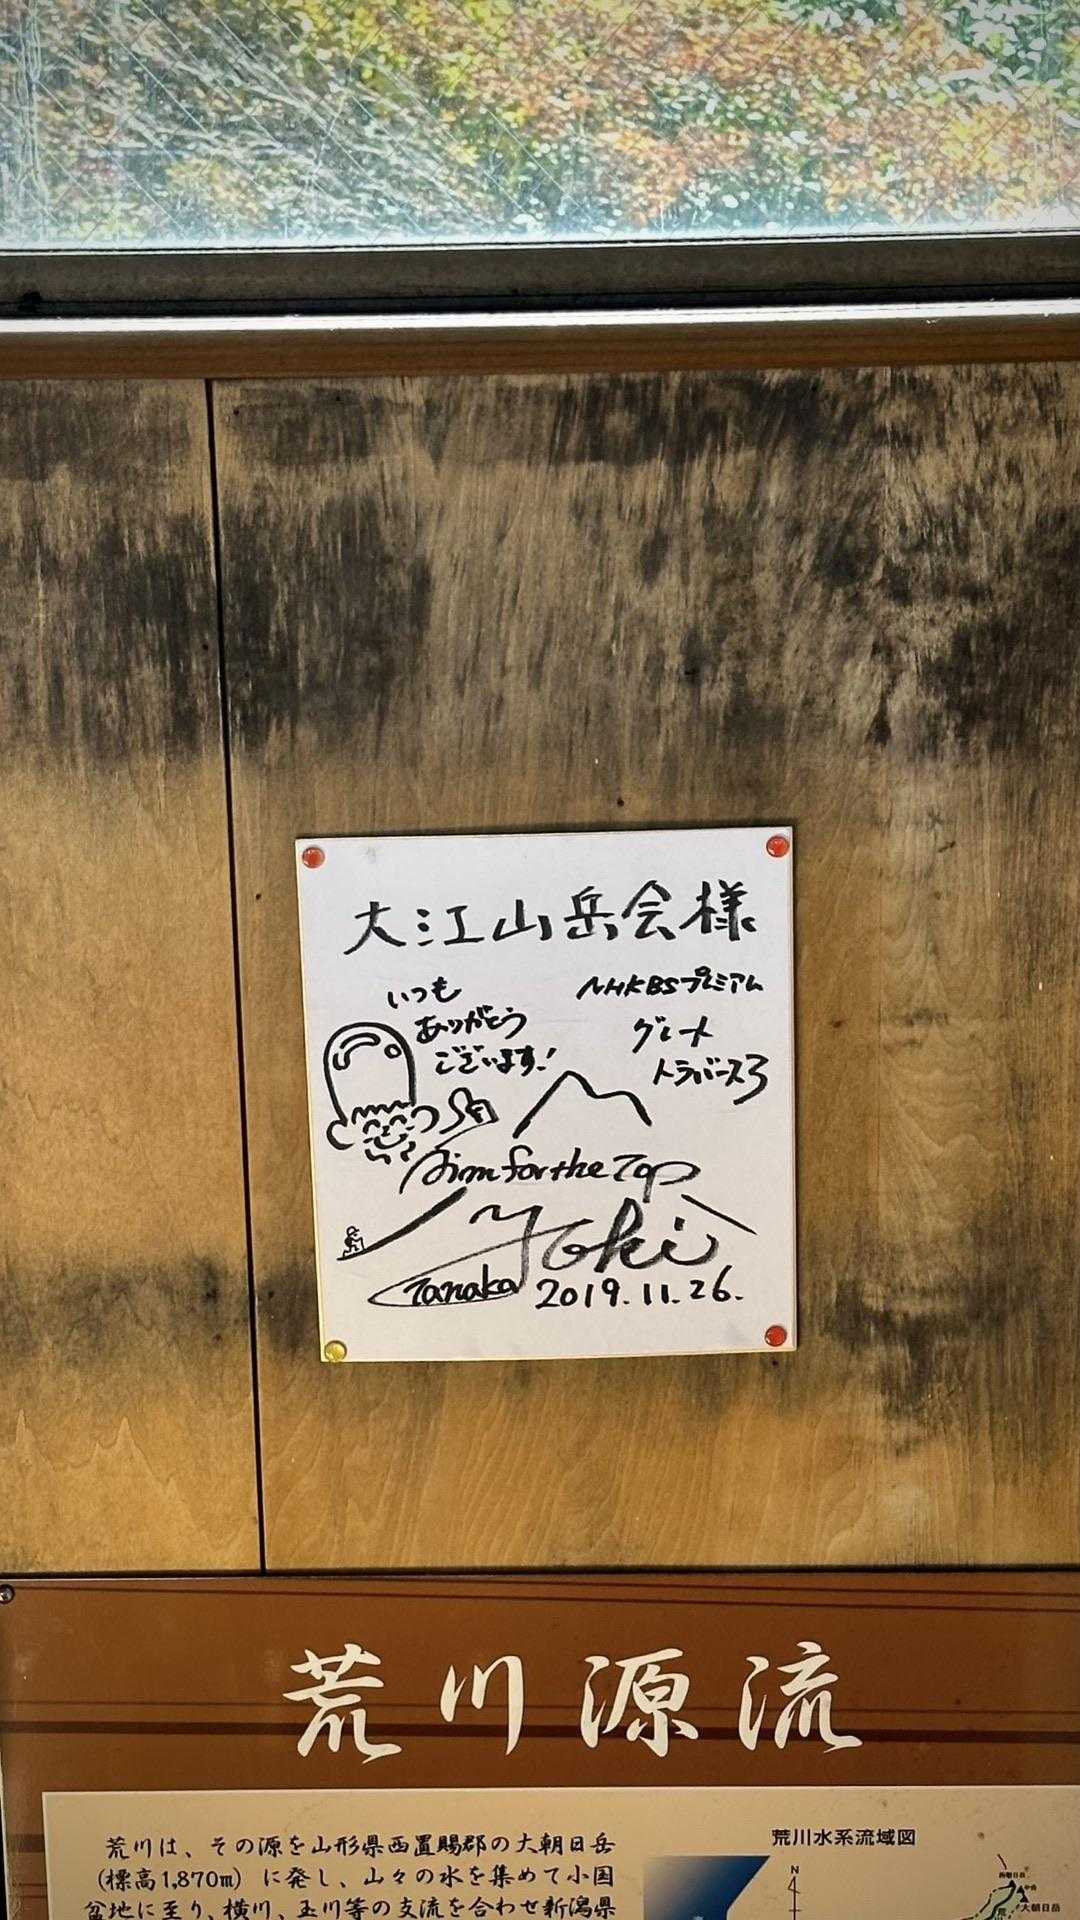 大江山岳会様
いつも
ありがとう
ございます!
NHKBSプレミアム
グレート
トラバース3
Aim for the Top
Yoki
Tanaka 2019.11.26.
荒川源流
荒川は、その源を山形県西置賜郡の大朝日岳
(標高1,870m) に発し、山々の水を集めて小国
盆地に至り、横川、玉川等の支流を合わせ新潟県
荒川水系流域図
N
大朝日岳